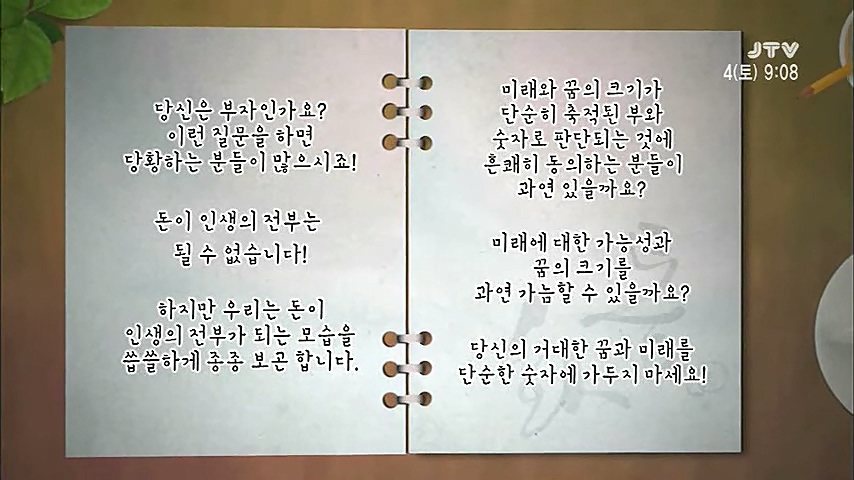 당신은 부자인가요?
이런 질문을 하면
당황하는 분들이 많으시죠!
돈이 인생의 전부는
될 수 없습니다!
하지만 우리는 돈이
인생의 전부가 되는 모습을
씁쓸하게 종종 보곤 합니다.
미래와 꿈의 크기가
단순히 축적된 부와
숫자로 판단되는 것에
흔쾌히 동의하는 분들이
과연 있을까요?
미래에 대한 가능성과
꿈의 크기를
과연 가늠할 수 있을까요?
당신의 거대한 꿈과 미래를
단순한 숫자에 가두지 마세요!
JTV
4(토) 9:08